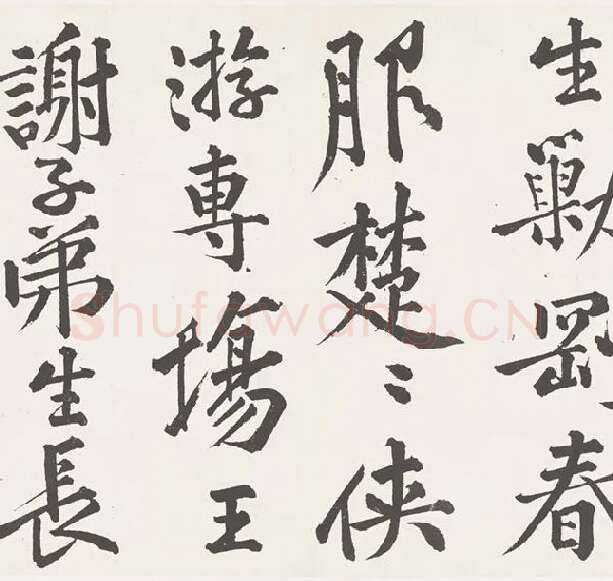 生春
服楚〻俠
游專場王
謝子弟生長
Shufawang.CN